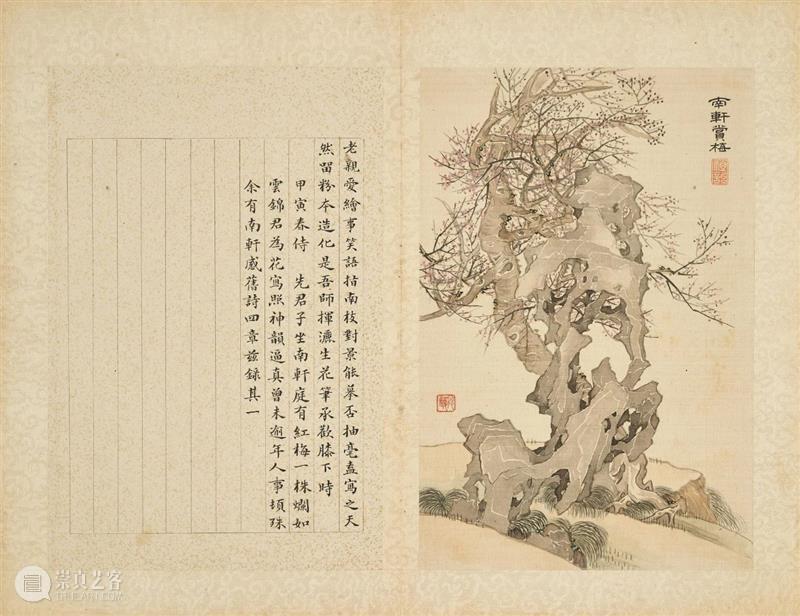 南軒賞梅
老親愛繪事笑語指南枝對景能摹否抽毫盍寫之天
然留粉本造化是吾師揮灑生花筆承歡膝下時
甲寅春侍 先君子坐南軒庭有紅梅一株爛如
雲錦君為花寫照神韻逼真曾未逾年人事頓殊
余有南軒感舊詩四章茲錄其一
崇真艺客